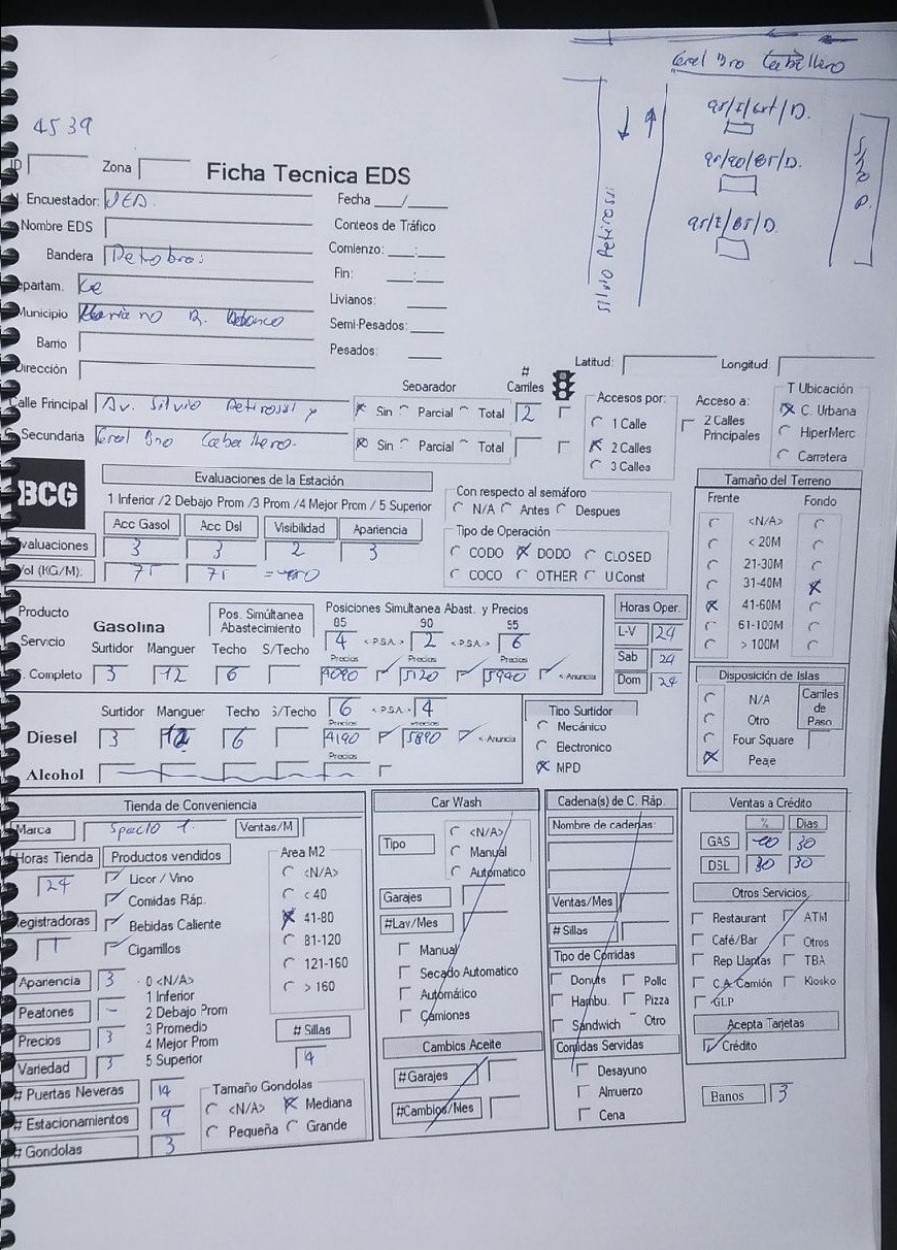 Gral Bro Caballero
4539
ID Zona Ficha Tecnica EDS
Encuestador: Fecha __/__
Nombre EDS Conteos de Tráfico
Bandera Petrobras Comienzo: __:__
Departam. Ce Fin: __:__
Livianos: ____
Municipio Mariano R. Alonso Semi-Pesados: ____
Barrio Pesados: ____
Dirección
Silvio Petirossi
Shop.
Latitud: Longitud:
Calle Principal Av. Silvio Petirossi y Separador Sin Parcial Total # Carriles 2
C. Secundaria Gral Bro Caballero. Sin Parcial Total
Accesos por:
1 Calle
2 Calles
3 Calles
Acceso a:
2 Calles Principales
T Ubicación
C. Urbana
HiperMerc
Carretera
BCG
Evaluaciones de la Estación
1 Inferior /2 Debajo Prom /3 Prom /4 Mejor Prom / 5 Superior
Acc Gasol Acc Dsl Visibilidad Apariencia
Evaluaciones 3 3 2 3
Vol (KG/M): 75 75
Con respecto al semáforo
N/A Antes Despues
Tipo de Operación
CODO DODO CLOSED
COCO OTHER U Const
Tamaño del Terreno
Frente Fondo
<N/A>
< 20M
21-30M
31-40M
41-60M
61-100M
> 100M
Producto Gasolina Pos. Simúltanea Abastecimiento Posiciones Simultanea Abast. y Precios
85 90 95
Servicio Surtidor Manguer Techo S/Techo 4 <P.S.A.> 2 <P.S.A.> 6
Precios Precios Precios
S. Completo 3 12 6 4090 5120 5990 <-Anuncia
Horas Oper.
L-V 24
Sab 24
Dom 24
Surtidor Manguer Techo S/Techo 6 <P.S.A.> 4
Precios Precios
Diesel 3 12 6 4190 5890 <-Anuncia
Precios
Alcohol
Tipo Surtidor
Mecánico
Electronico
MPD
Disposición de Islas
N/A
Otro
Four Square
Peaje
Carriles de Paso
Tienda de Conveniencia
Marca Spacio 1. Ventas/M
Horas Tienda 24
Productos vendidos
Licor / Vino
Comidas Ráp.
Bebidas Caliente
Cigarrillos
Registradoras 1
Area M2
<N/A>
< 40
41-80
81-120
121-160
> 160
Apariencia 3
Peatones -
Precios 3
Variedad 3
0 <N/A>
1 Inferior
2 Debajo Prom
3 Promedio
4 Mejor Prom
5 Superior
# Sillas
# Puertas Neveras 14
# Estacionamientos 9
# Gondolas 3
Tamaño Gondolas
<N/A> Mediana
Pequeña Grande
Car Wash
Tipo
<N/A>
Manual
Automatico
Garajes
#Lav/Mes
Manual
Secado Automatico
Automático
Camiones
Cambios Aceite
#Garajes
#Cambios/Mes
Cadena(s) de C. Ráp.
Nombre de cadenas:
Ventas/Mes
# Sillas
Tipo de Comidas
Donuts Pollo
Hambu. Pizza
Sandwich Otro
Comidas Servidas
Desayuno
Almuerzo
Cena
Ventas a Crédito
% Dias
GAS 30
DSL 30 30
Otros Servicios
Restaurant ATM
Café/Bar Otros
Rep Llantas TBA
C.A. Camión Kiosko
GLP
Acepta Tarjetas
Crédito
Banos 3